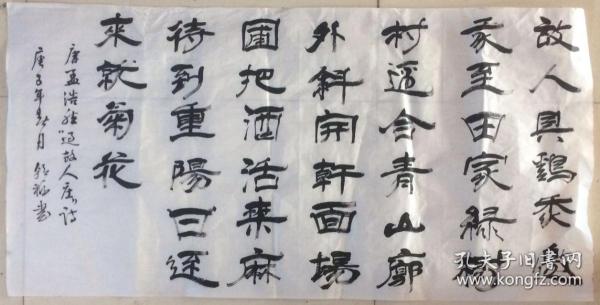 故人具鷄黍邀
我至田家綠樹
村邊合青山廓
外斜開軒面場
圃把酒活桑麻
待到重陽日還
來就菊花
唐孟浩然過故人庄詩
庚子年 月 書
孔夫子旧书网
www.kongfz.com